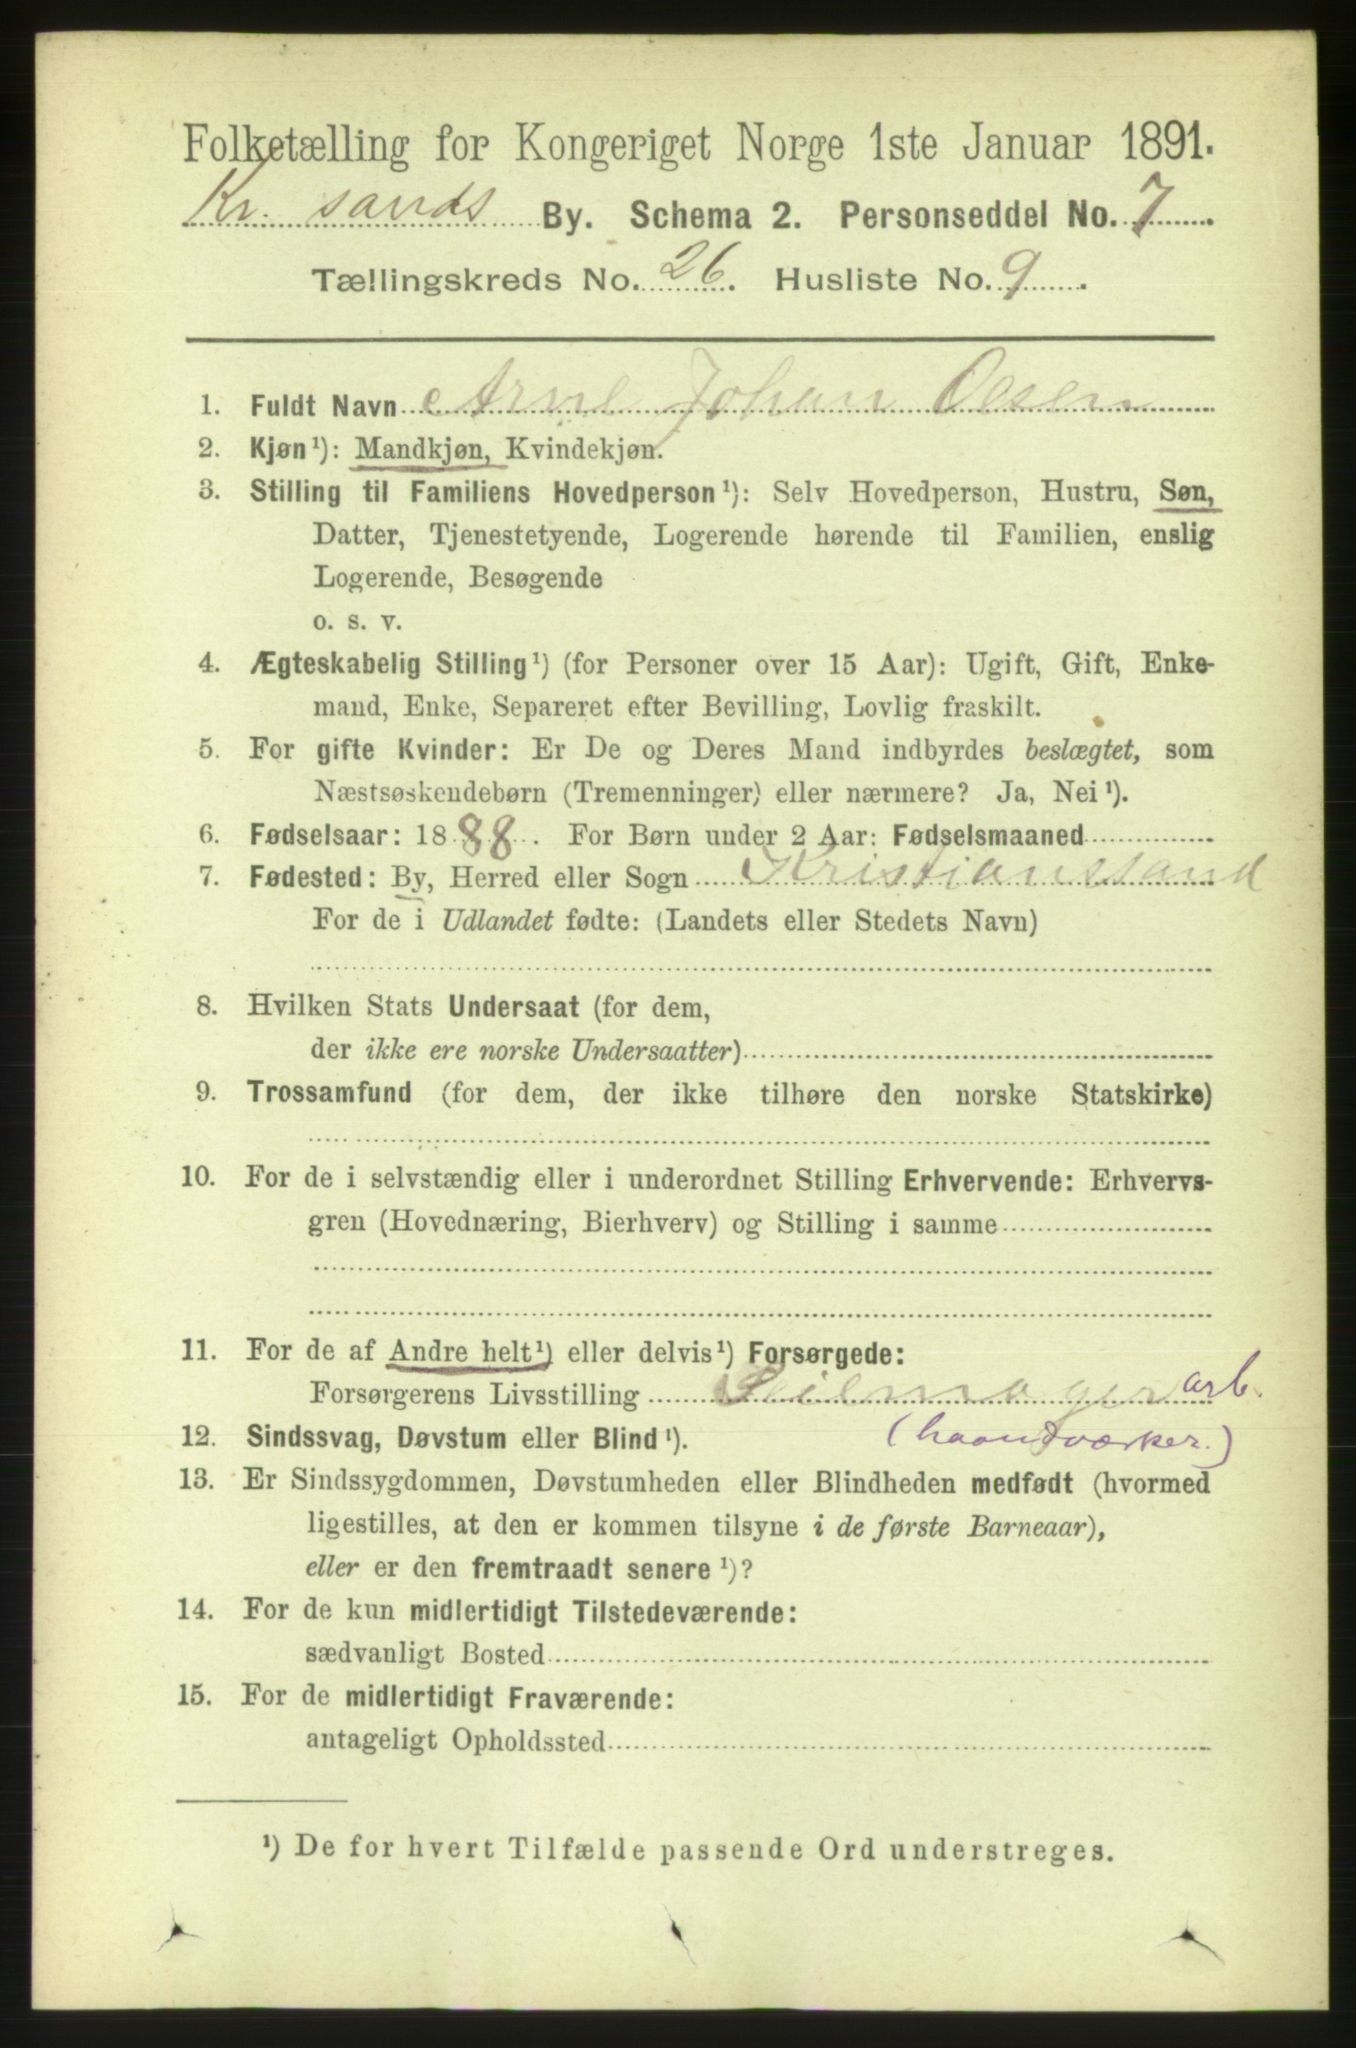 Folketælling for Kongeriget Norge 1ste Januar 1891.
Kr. sands By. Schema 2. Personseddel No. 7
Tællingskreds No. 26. Husliste No. 9.
1. Fuldt Navn Arne Johan Olsen
2. Kjøn¹): Mandkjøn, Kvindekjøn.
3. Stilling til Familiens Hovedperson¹): Selv Hovedperson, Hustru, Søn,
Datter, Tjenestetyende, Logerende hørende til Familien, enslig
Logerende, Besøgende
o. s. v.
4. Ægteskabelig Stilling¹) (for Personer over 15 Aar): Ugift, Gift, Enke-
mand, Enke, Separeret efter Bevilling, Lovlig fraskilt.
5. For gifte Kvinder: Er De og Deres Mand indbyrdes beslægtet, som
Næstsøskendebørn (Tremenninger) eller nærmere? Ja, Nei¹).
6. Fødselsaar: 1888. For Børn under 2 Aar: Fødselsmaaned
7. Fødested: By, Herred eller Sogn Kristianssand
For de i Udlandet fødte: (Landets eller Stedets Navn)
8. Hvilken Stats Undersaat (for dem,
der ikke ere norske Undersaatter)
9. Trossamfund (for dem, der ikke tilhøre den norske Statskirke)
10. For de i selvstændig eller i underordnet Stilling Erhvervende: Erhvervs-
gren (Hovednæring, Bierhverv) og Stilling i samme
11. For de af Andre helt¹) eller delvis¹) Forsørgede:
Forsørgerens Livsstilling Seilmager arb.
12. Sindssvag, Døvstum eller Blind¹). (haandværker.)
13. Er Sindssygdommen, Døvstumheden eller Blindheden medfødt (hvormed
ligestilles, at den er kommen tilsyne i de første Barneaar),
eller er den fremtraadt senere¹)?
14. For de kun midlertidigt Tilstedeværende:
sædvanligt Bosted
15. For de midlertidigt Fraværende:
antageligt Opholdssted
¹) De for hvert Tilfælde passende Ord understreges.